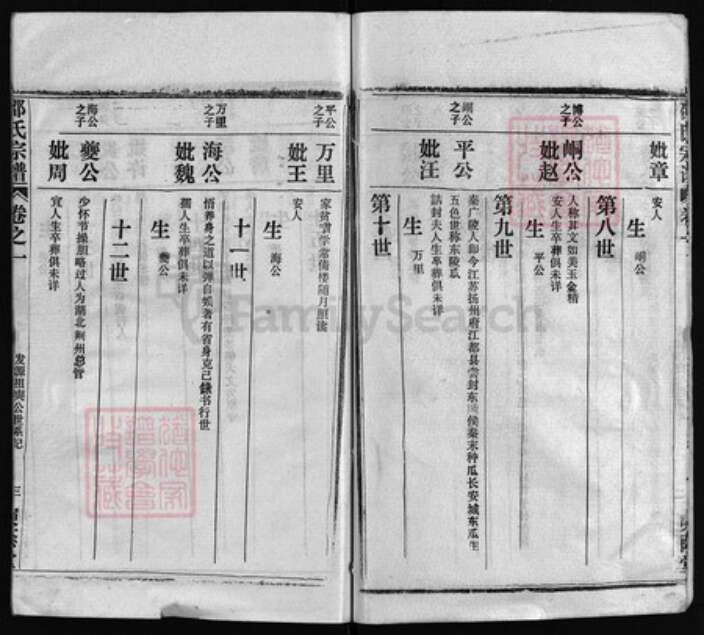 妣章
安人
生 峒公
第八世
博公之子
峒公
人称其文如美玉金精
妣赵
安人生卒葬俱未详
生 平公
第九世
峒公之子
平公
秦广陵人即今江苏扬州府江都县尝封东陵侯秦末种瓜长安城东瓜生
五色世称东陵瓜
妣汪
诰封夫人生卒葬俱未详
生 万里
第十世
平公之子
万里
家贫嗜学常倚楼随月照读
妣王
安人
生 海公
十一世
万里之子
海公
悟养身之道以弹自娱著有省身克己录书行世
妣魏
孺人生卒葬俱未详
生 夔公
十二世
海公之子
夔公
少怀节操胆略过人为湖北荆州总管
妣周
宜人生卒葬俱未详
邵氏宗谱 卷之一
发源祖奭公世系记
三
FamilySearch